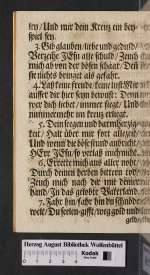 sey/ Und mir dein Kreutz ein bey-
spiel sey.
3. Gib glauben/ liebe und gedult/
Verzeihe JEsu alle schuld/ Zeuch
mich ab von der bösen schaar: Daß
sie nichts bringet als gefahr.
4. Laß keine freude/ keine lust Mir
ausser dir hier seyn bewust: Denn
wer dich liebet/ immer siegt/ Und
nimmermehr im kreutz erliegt.
5. Dein segen und barmhertzig-
keit/ Halt über mir fort allezeit/
Und wenn die böse stund anbricht/
HErr JEsu/ so verlaß mich nicht.
6. Errette mich aus allem noth/
Durch deinen herben bittern tod/
Zeuch mich nach dir mit deiner
hand/ In das gelobte Vaterland.
7. Fahr hin/ fahr hin du schnöde
welt/ Du seelen-gifft/ weg gold und
geld/
Herzog August Bibliothek Wolfenbüttel
Kodak